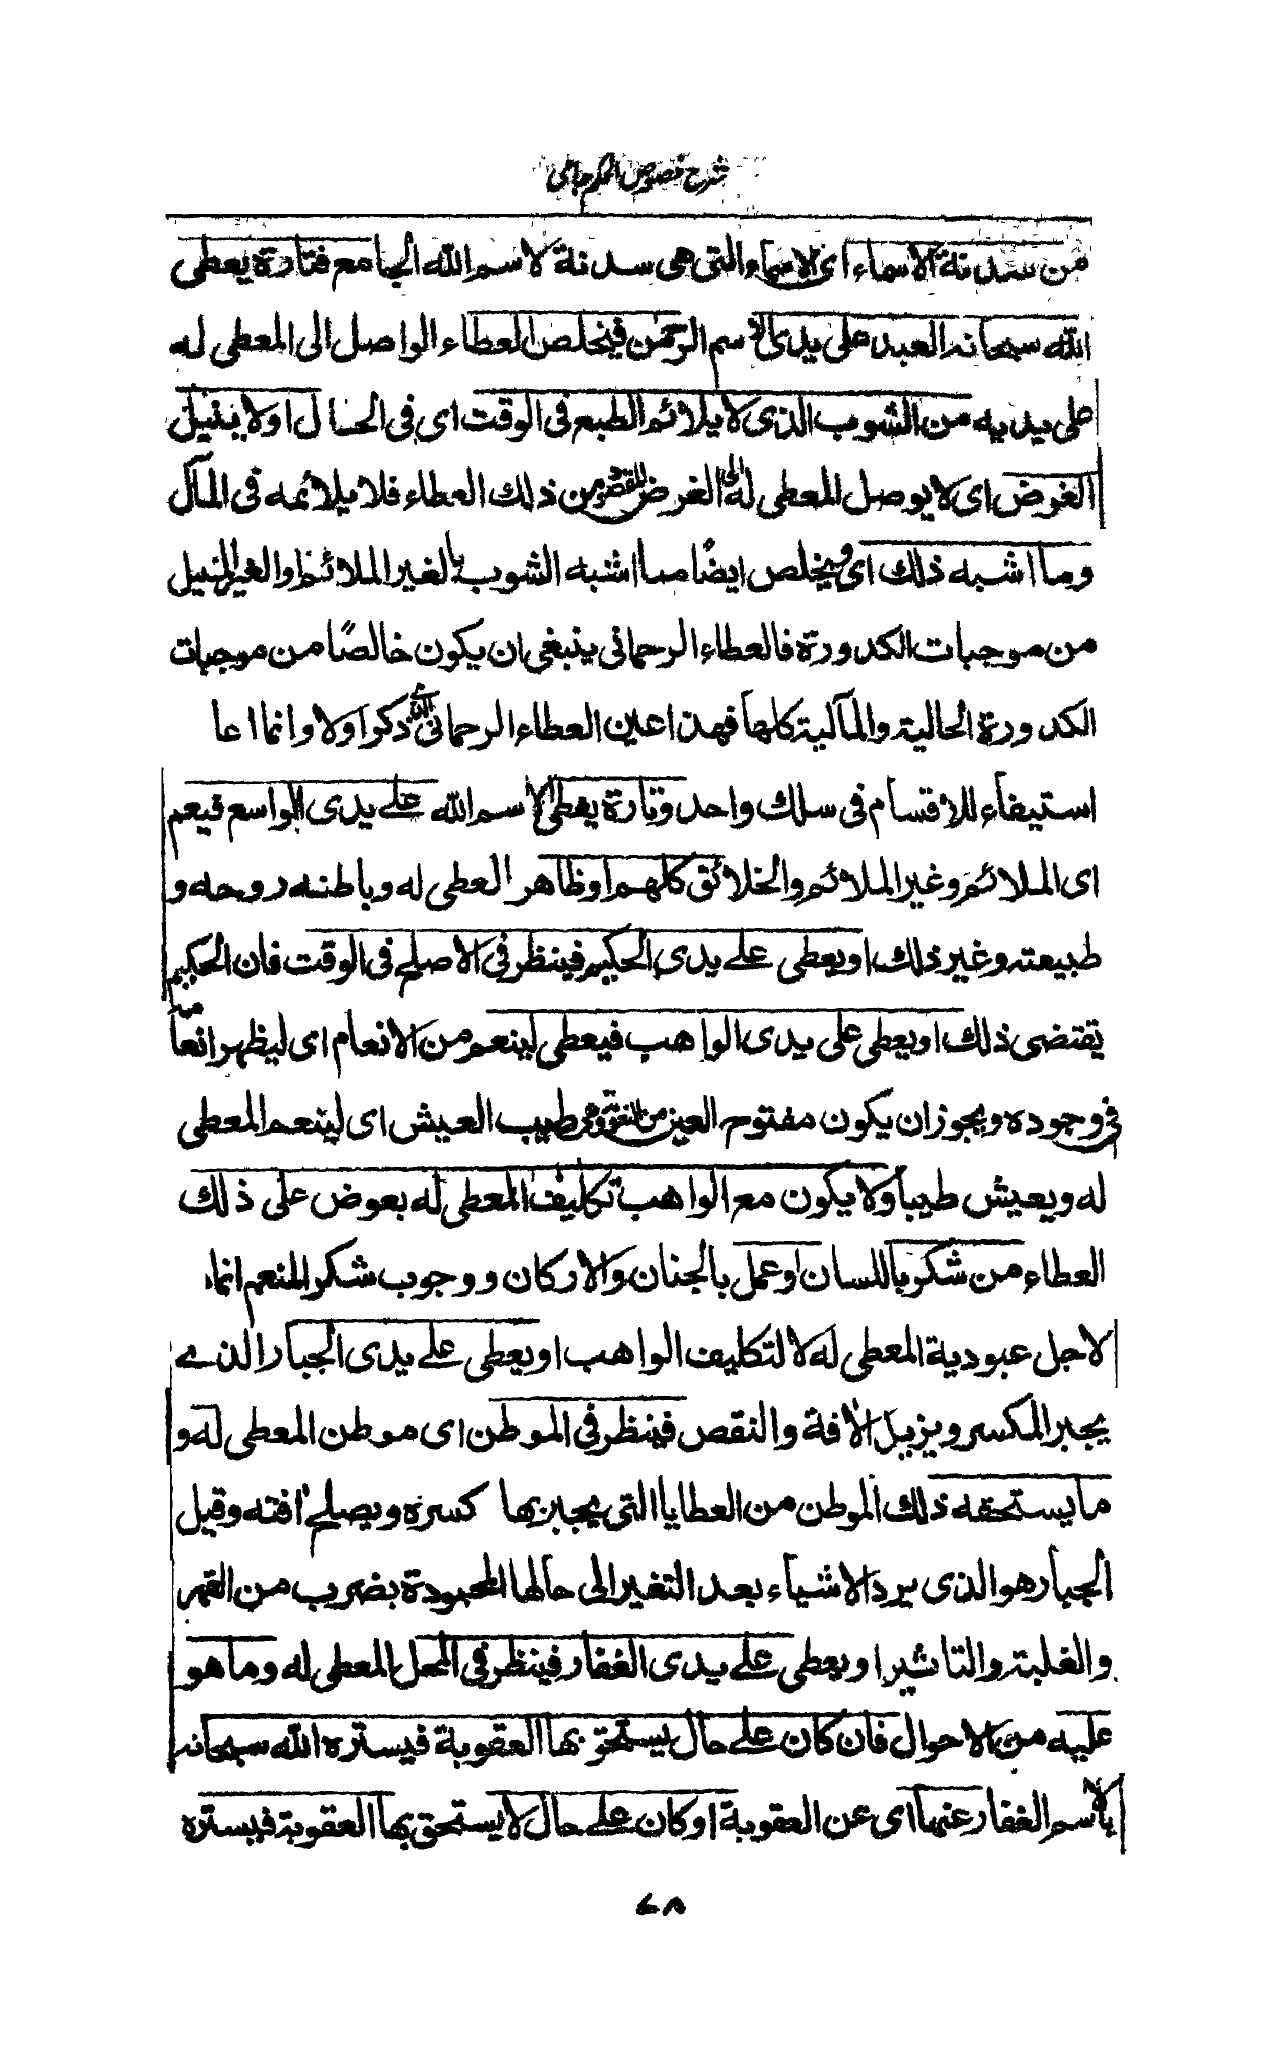 شرح فصوص الحكم جامى
من سدنة الاسماء اى الاسماء والتى هى سدنة لاسم الله الجامع فتارة يعطى
الله سبحانه العبد على يدى الاسم الرحمن فيخلص العطاء الواصل الى المعطى له
على يديه من الشوب الذى لا يلائم الطبع فى الوقت اى فى الحال او لا ينيل
الغرض اى لا يوصل المعطى له الى الغرض المقصود من ذلك العطاء فلا يلائمه فى المآل
وما اشبه ذلك اى ويخلص ايضًا مما اشبه الشوب بالغير الملائم او الغير المنيل
من موجبات الكدورة فالعطاء الرحمانى ينبغى ان يكون خالصًا من موجبات
الكدورة الحالية والمآلية كلها فهذا عين العطاء الرحمانى الذى ذكر اولا وانما اعا
استيفاء للاقسام فى سلك واحد وتارة يعطى الاسم الله على يدى الواسع فيعم
اى الملائم وغير الملائم والخلائق كلهم او ظاهر العطى له وباطنه روحه و
طبيعته وغير ذلك او يعطى على يدى الحكيم فينظر فى الاصلح فى الوقت فان الحكيم
يقتضى ذلك او يعطى على يدى الواهب فيعطى لينعم من الانعام اى ليظهر انعامه
فى وجوده ويجوز ان يكون مفتوح العين من النعمة وهى طيب العيش اى لينعم المعطى
له ويعيش طيبا ولا يكون مع الواهب تكليف المعطى له بعوض على ذلك
العطاء من شكر باللسان او عمل بالجنان والاركان ووجوب شكر المنعم انما
لاجل عبودية المعطى له لا لتكليف الواهب او يعطى على يدى الجبار الذى
يجبر المكسر ويزيل الافة والنقص فينظر فى الموطن اى موطن المعطى له و
ما يستحقه ذلك الموطن من العطايا التى يجبر بها كسره ويصلح افته وقيل
الجبار هو الذى يرد الاشياء بعد التغير الى حالها المحمودة بضرب من القهر
والغلبة والتاثير او يعطى على يدى الغفار فينظر فى المحل المعطى له وما هو
عليه من الاحوال فان كان على حال يستحق بها العقوبة فيستره الله سبحانه
بالاسم الغفار عنها اى عن العقوبة او كان على حال لا يستحق بها العقوبة فيستره
٤٨